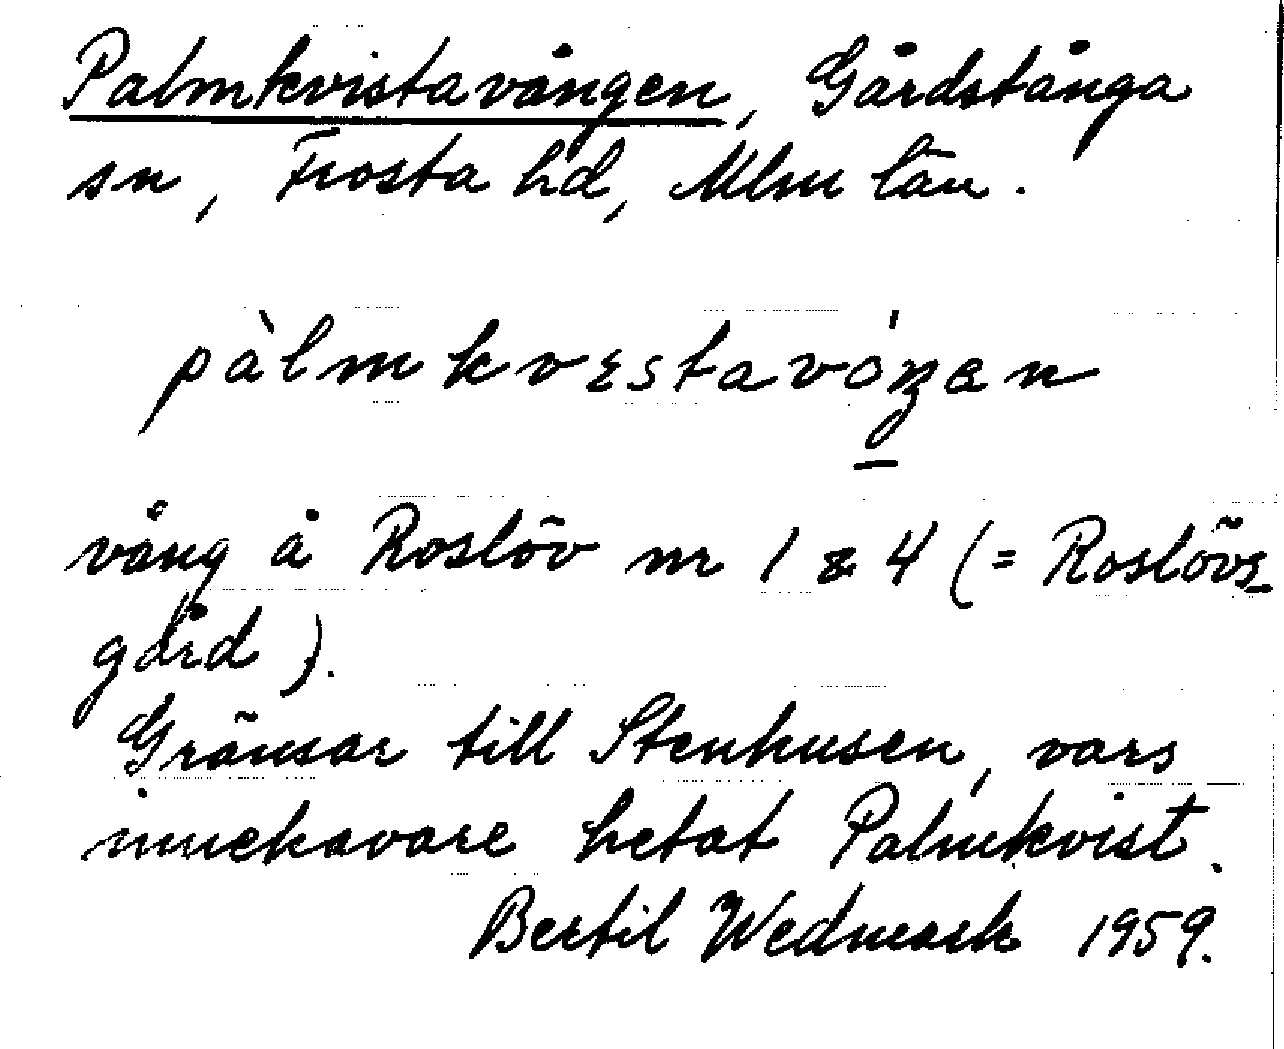 Palmkvistavången, Gårdstånga
sn, Frosta hd, Mlm län.
pàlmkvɛstavóŋ̱ən
vång å Roslöv nr 1 & 4 (= Roslövs-
gård).
Gränsar till Stenhusen, vars
innehavare hetat Palmkvist.
Bertil Wedmark 1959.